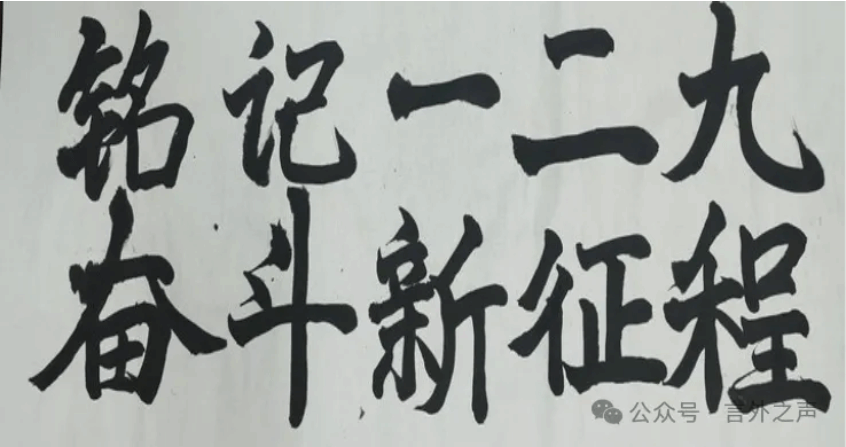 铭记一二九
奋斗新征程
公众号·言外之声